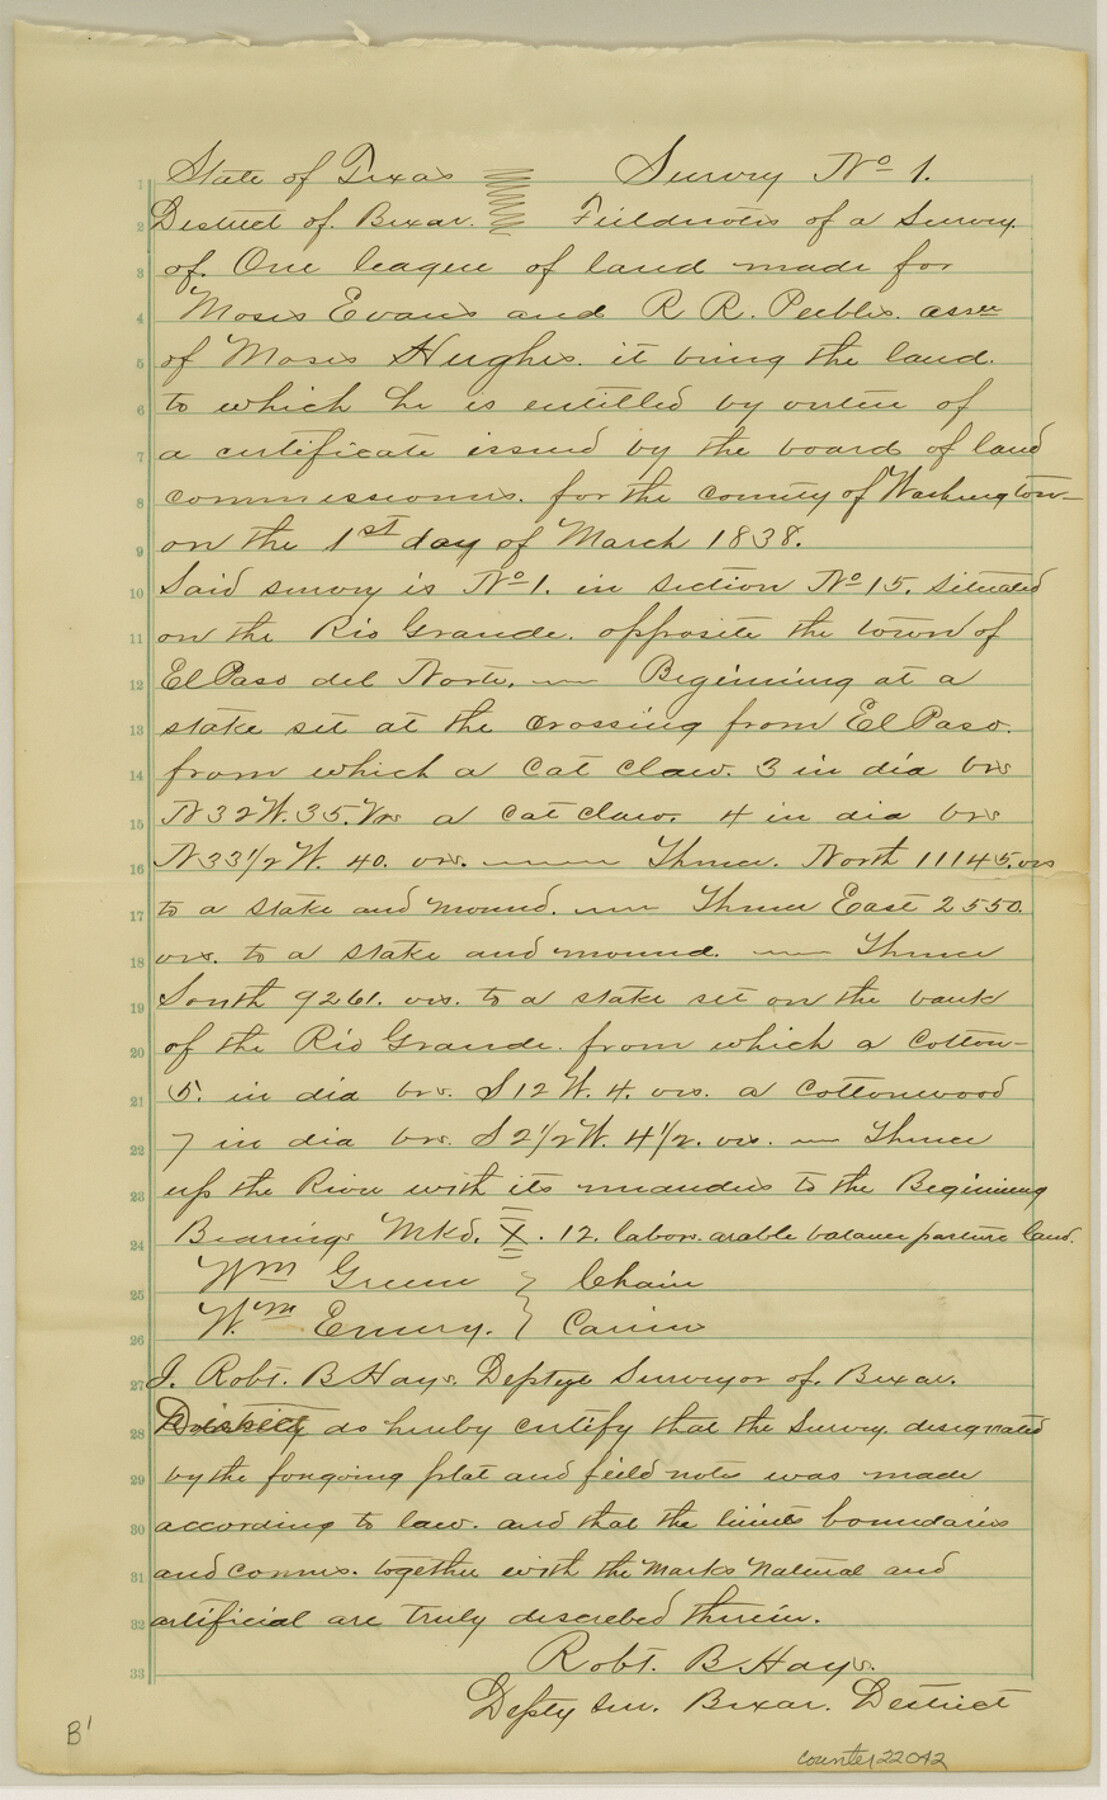 State of Texas Survey No 1.
District of. Bexar. Fieldnotes of a Survey.
of. One league of land made for
Moses Evans and R R. Peebles. assee
of Moses Hughes. it being the land.
to which he is entitled by virtue of
a certificate issued by the board of land
commissioners. for the county of Washington
on the 1st day of March 1838.
Said survey is No 1. in section No 15. situated
on the Rio Grande. opposite the town of
El Paso del Norte. Beginning at a
stake set at the crossing from El Paso.
from which a Cat Claw. 3 in dia brs
N 32 W. 35. Vrs a Cat Claw. 4 in dia brs
N 33 1/2 W. 40. vrs. Thence. North 11145. vrs
to a stake and mound. Thence East 2550.
vrs. to a stake and mound. Thence
South 9261. vrs. to a stake set on the bank
of the Rio Grande. from which a Cotton-
5. in dia brs. S 12 W. 4. vrs. a Cottonwood
7 in dia brs. S 2 1/2 W. 4 1/2. vrs. Thence
up the River with its meanders to the Beginning
Bearings Mkd. X. 12. labors. arable balance pasture land.
Wm Green } Chain
W.m Emery. } Carriers
I. Robt. B Hays. Deptye Surveyor of. Bexar.
District do hereby certify that the Survey. designated
by the forgoing plat and field notes was made
according to law. and that the limits boundaries
and corners. together with the marks natural and
artificial are truly descrebed therein.
Robt. B Hays.
Depty Sur. Bexar. District
B'
counter 22042
1
2
3
4
5
6
7
8
9
10
11
12
13
14
15
16
17
18
19
20
21
22
23
24
25
26
27
28
29
30
31
32
33